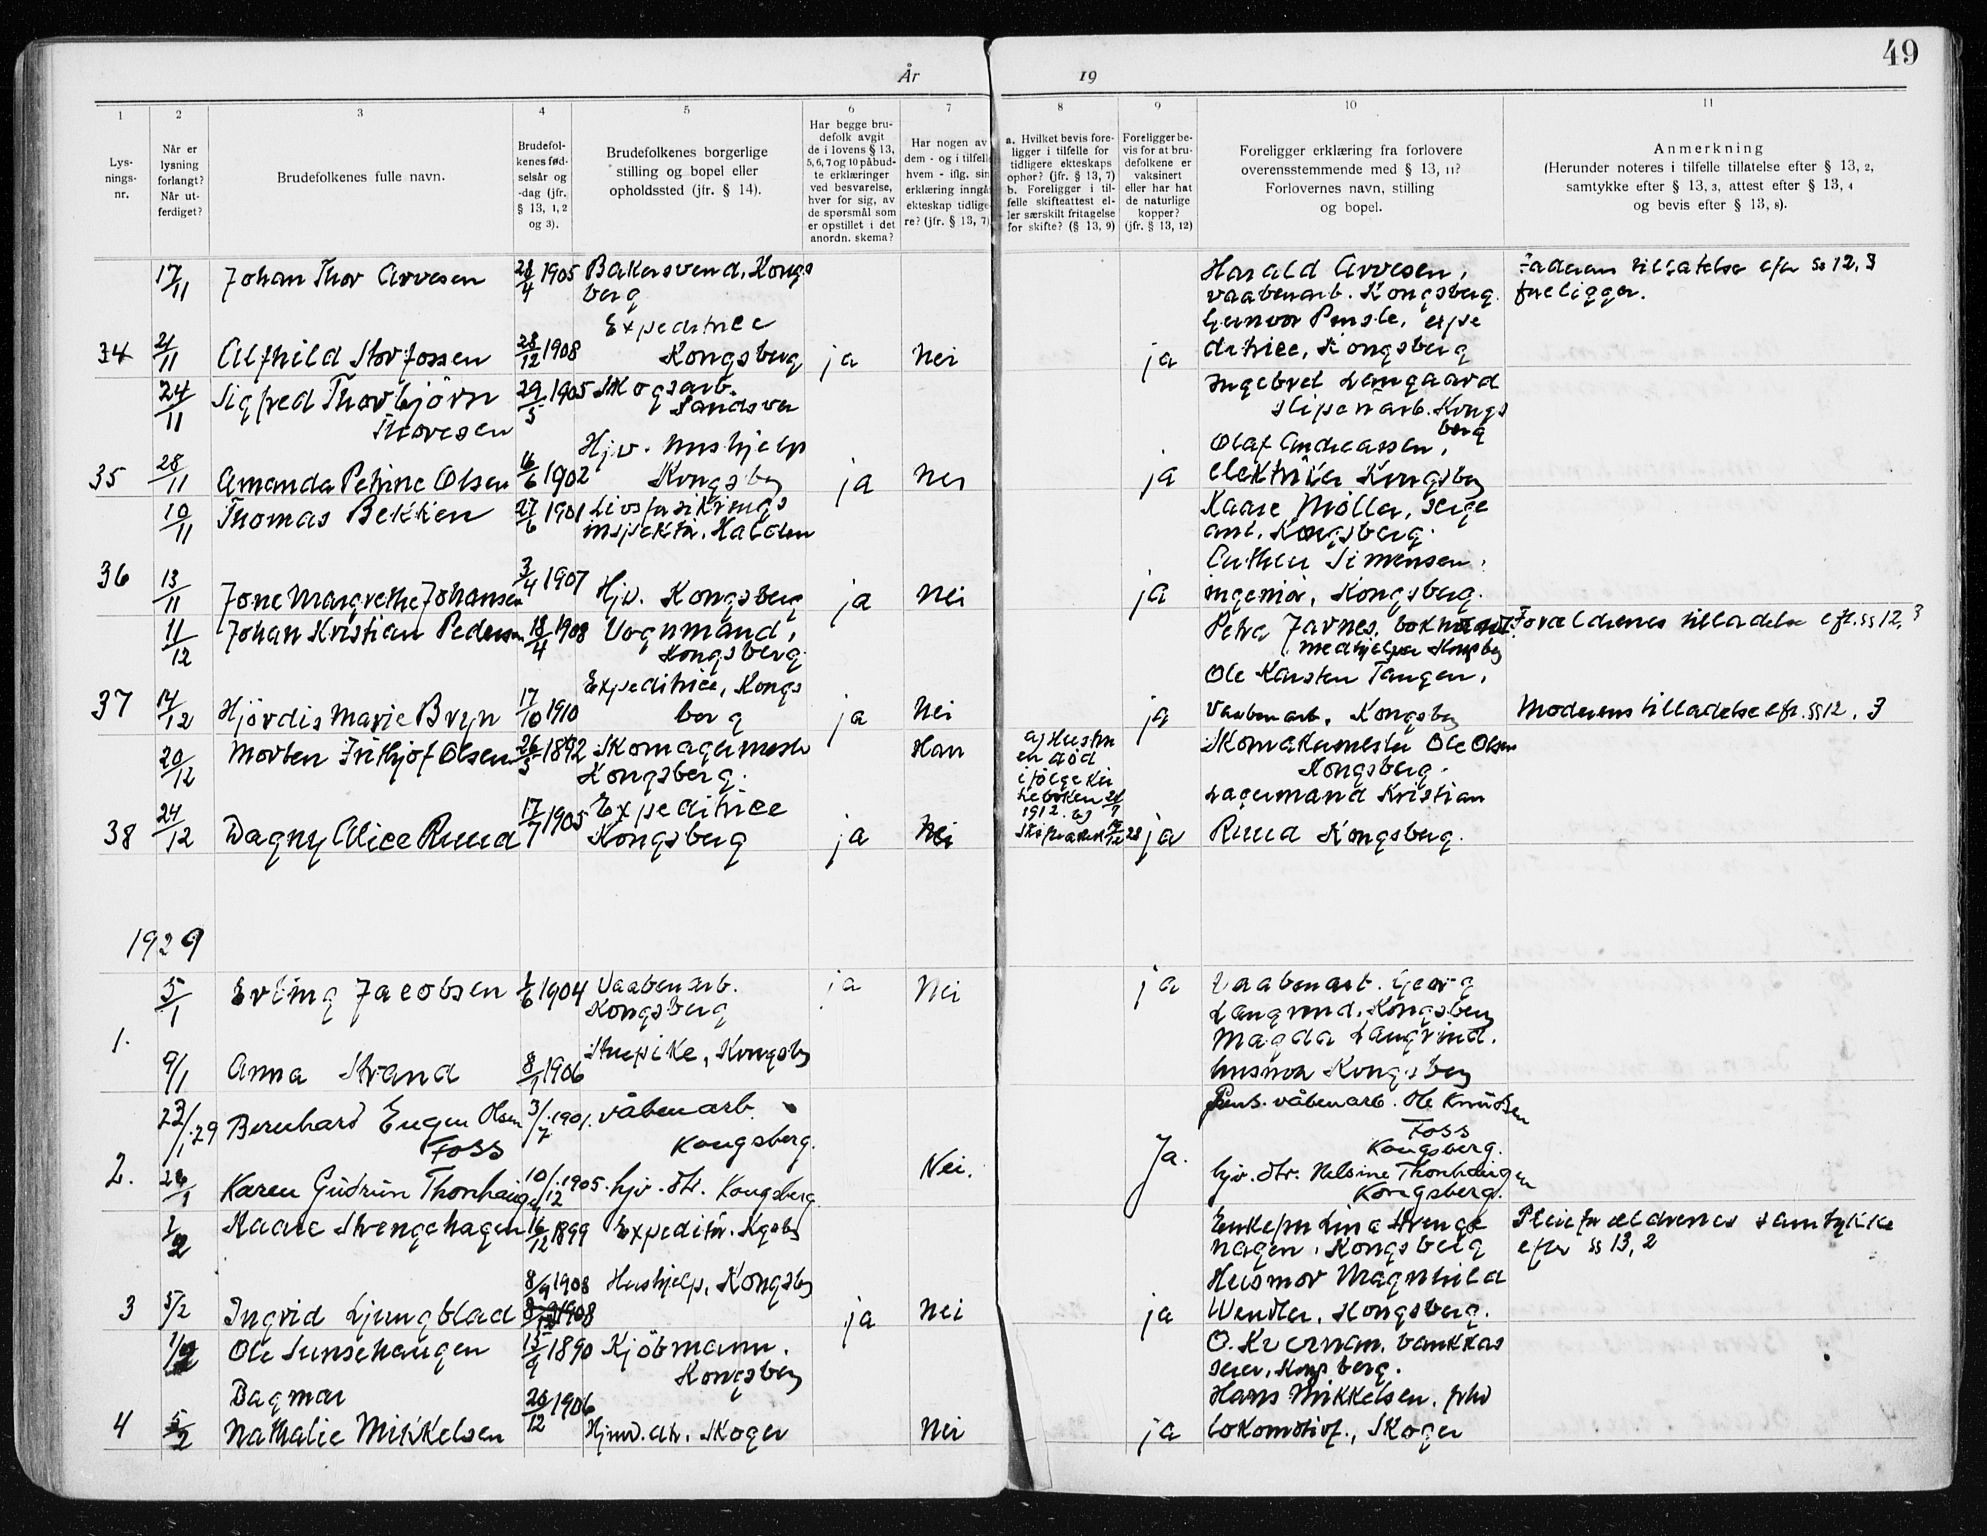 49
År 19
1 2 3 4 5 6 7 8 9 10 11
Lys-
nings-
nr.
Når er
lysning
forlangt?
Når ut-
ferdiget?
Brudefolkenes fulle navn.
Brudefol-
kenes fød-
selsår og
-dag (jfr.
§ 13, 1, 2
og 3).
Brudefolkenes borgerlige
stilling og bopel eller
opholdssted (jfr. § 14).
Har begge bru-
defolk avgit
de i lovens § 13,
5, 6, 7 og 10 påbud-
te erklæringer
ved besvarelse,
hver for sig, av
de spørsmål som
er opstillet i det
anordn. skema?
Har nogen av
dem - og i tilfelle
hvem - iflg. sin
erklæring inngå
ekteskap tidlige-
re? (jfr. § 13, 7)
a. Hvilket bevis fore-
ligger i tilfelle for
tidligere ekteskaps
ophør? (jfr. § 13, 7)
b. Foreligger i til-
felle skifteattest el-
ler særskilt fritagelse
for skifte? (§ 13, 9)
Foreligger be-
vis for at bru-
defolkene er
vaksinert
eller har hat
de naturlige
kopper?
(jfr. § 13, 12)
Foreligger erklæring fra forlovere
overensstemmende med § 13, 11?
Forlovernes navn, stilling
og bopel.
Anmerkning
(Herunder noteres i tilfelle tillatelse efter § 13, 2,
samtykke efter § 13, 3, attest efter § 13, 4
og bevis efter § 13, 8).
17/11 Johan Thor Arvesen 28/4 1905 Bakersvend, Kongs
berg
Harald Arvesen,
vaabenarb. Kongsberg.
Faderens tillatelse efter §§ 12, 3
foreligger.
34 21/11 Alfhild Storfossen 28/12 1908 Expeditrice
Kongsberg ja Nei ja
Gunvor expe
ditrice, Kongsberg
24/11 Sigfred Thorbjörn
Thoresen 29/5 1905 Skogsarb.
Sandsver
Ingebret Langaard
slipenarb. Kongs
berg
35 28/11 Amanda Petrine Olsen 16/6 1902 Hjv. hushjelp
Kongsberg ja Nei ja
Olaf Andreassen,
elektriker Kongsberg
10/11 Thomas Bekken 27/6 1901 Livsforsikrings
inspektør. Halden
Kaare Möller, serge
ant. Kongsberg.
36 13/11 Jone Margrethe Johansen 3/4 1907 Hjv. Kongsberg ja Nei ja
Luther Simensen,
ingeniör, Kongsberg.
11/12 Johan Kristian Pedersen 18/4 1908 Vognmand,
Kongsberg.
Petra Jarnes,
medhjelper Kongsberg
Forældrenes tilladelse eft. §§ 12, 3
37 14/12 Hjördis Marie Bryn 17/10 1910 Expeditrice, Kongs
berg ja Nei ja
Ole Karsten Tangen,
Vaabenarb, Kongsberg
Moderens tilladelse eft. §§ 12, 3
20/12 Morten Frithjof Olsen 26/3 1892 Skomagermester
Kongsberg. Han
a) Hustru
er død
i følge kir
keboken 21/9
1912. b)
Skifteattest 28
Skomakermester Ole Olsen
Kongsberg.
38 24/12 Dagny Alice Ruud 17/7 1905 Expeditrice
Kongsberg ja Nei ja
Lagermand Kristian
Ruud Kongsberg.
1929
5/1 Erling Jacobsen 1/6 1904 Vaabenarb.
Kongsberg ja Nei ja
Vaabenarb. Georg
Langrind, Kongsberg
1. 9/1 Anna Strand 8/1 1906 Stuepike, Kongsberg
Magda Langrind.
husmor Kongsberg
23/1.29 Bernhard Eugen Olsen
Foss 3/7.1901. våbenarb.
Kongsberg.
Pens. våbenarb. Ole Knudsen
Foss
Kongsberg.
2. 26/1 Karen Gudrun Thonhaugen 10/12.1905. hjv. dtr. Kongsberg. Nei. Ja.
hjv. dtr. Helsine Thonhaugen
Kongsberg.
1/2 Kaare Strengehagen 16/12 1899 Expeditör. Kgsbg
Enkefru Lina Strenge
hagen, Kongsberg
Pleieforældrenes samtykke
efter §§ 13, 2
3 5/2 Ingrid Ljungblad 8/9 1908 Hushjelp, Kongsberg ja Nei ja
Husmor Magnhild
Wendler, Kongsberg.
1/2 Ole Sunsehaugen 15/9 1890 Kjöbmann.
Kongsberg
O. Kvernam, bankkas
serer, Kongsberg.
4 5/2 Dagmar
Nathalie Mikkelsen 26/12 1906 Hjmv. dtr. Skoger Nei ja
Hans Mikkelsen, fhv
lokomotivf., Skoger